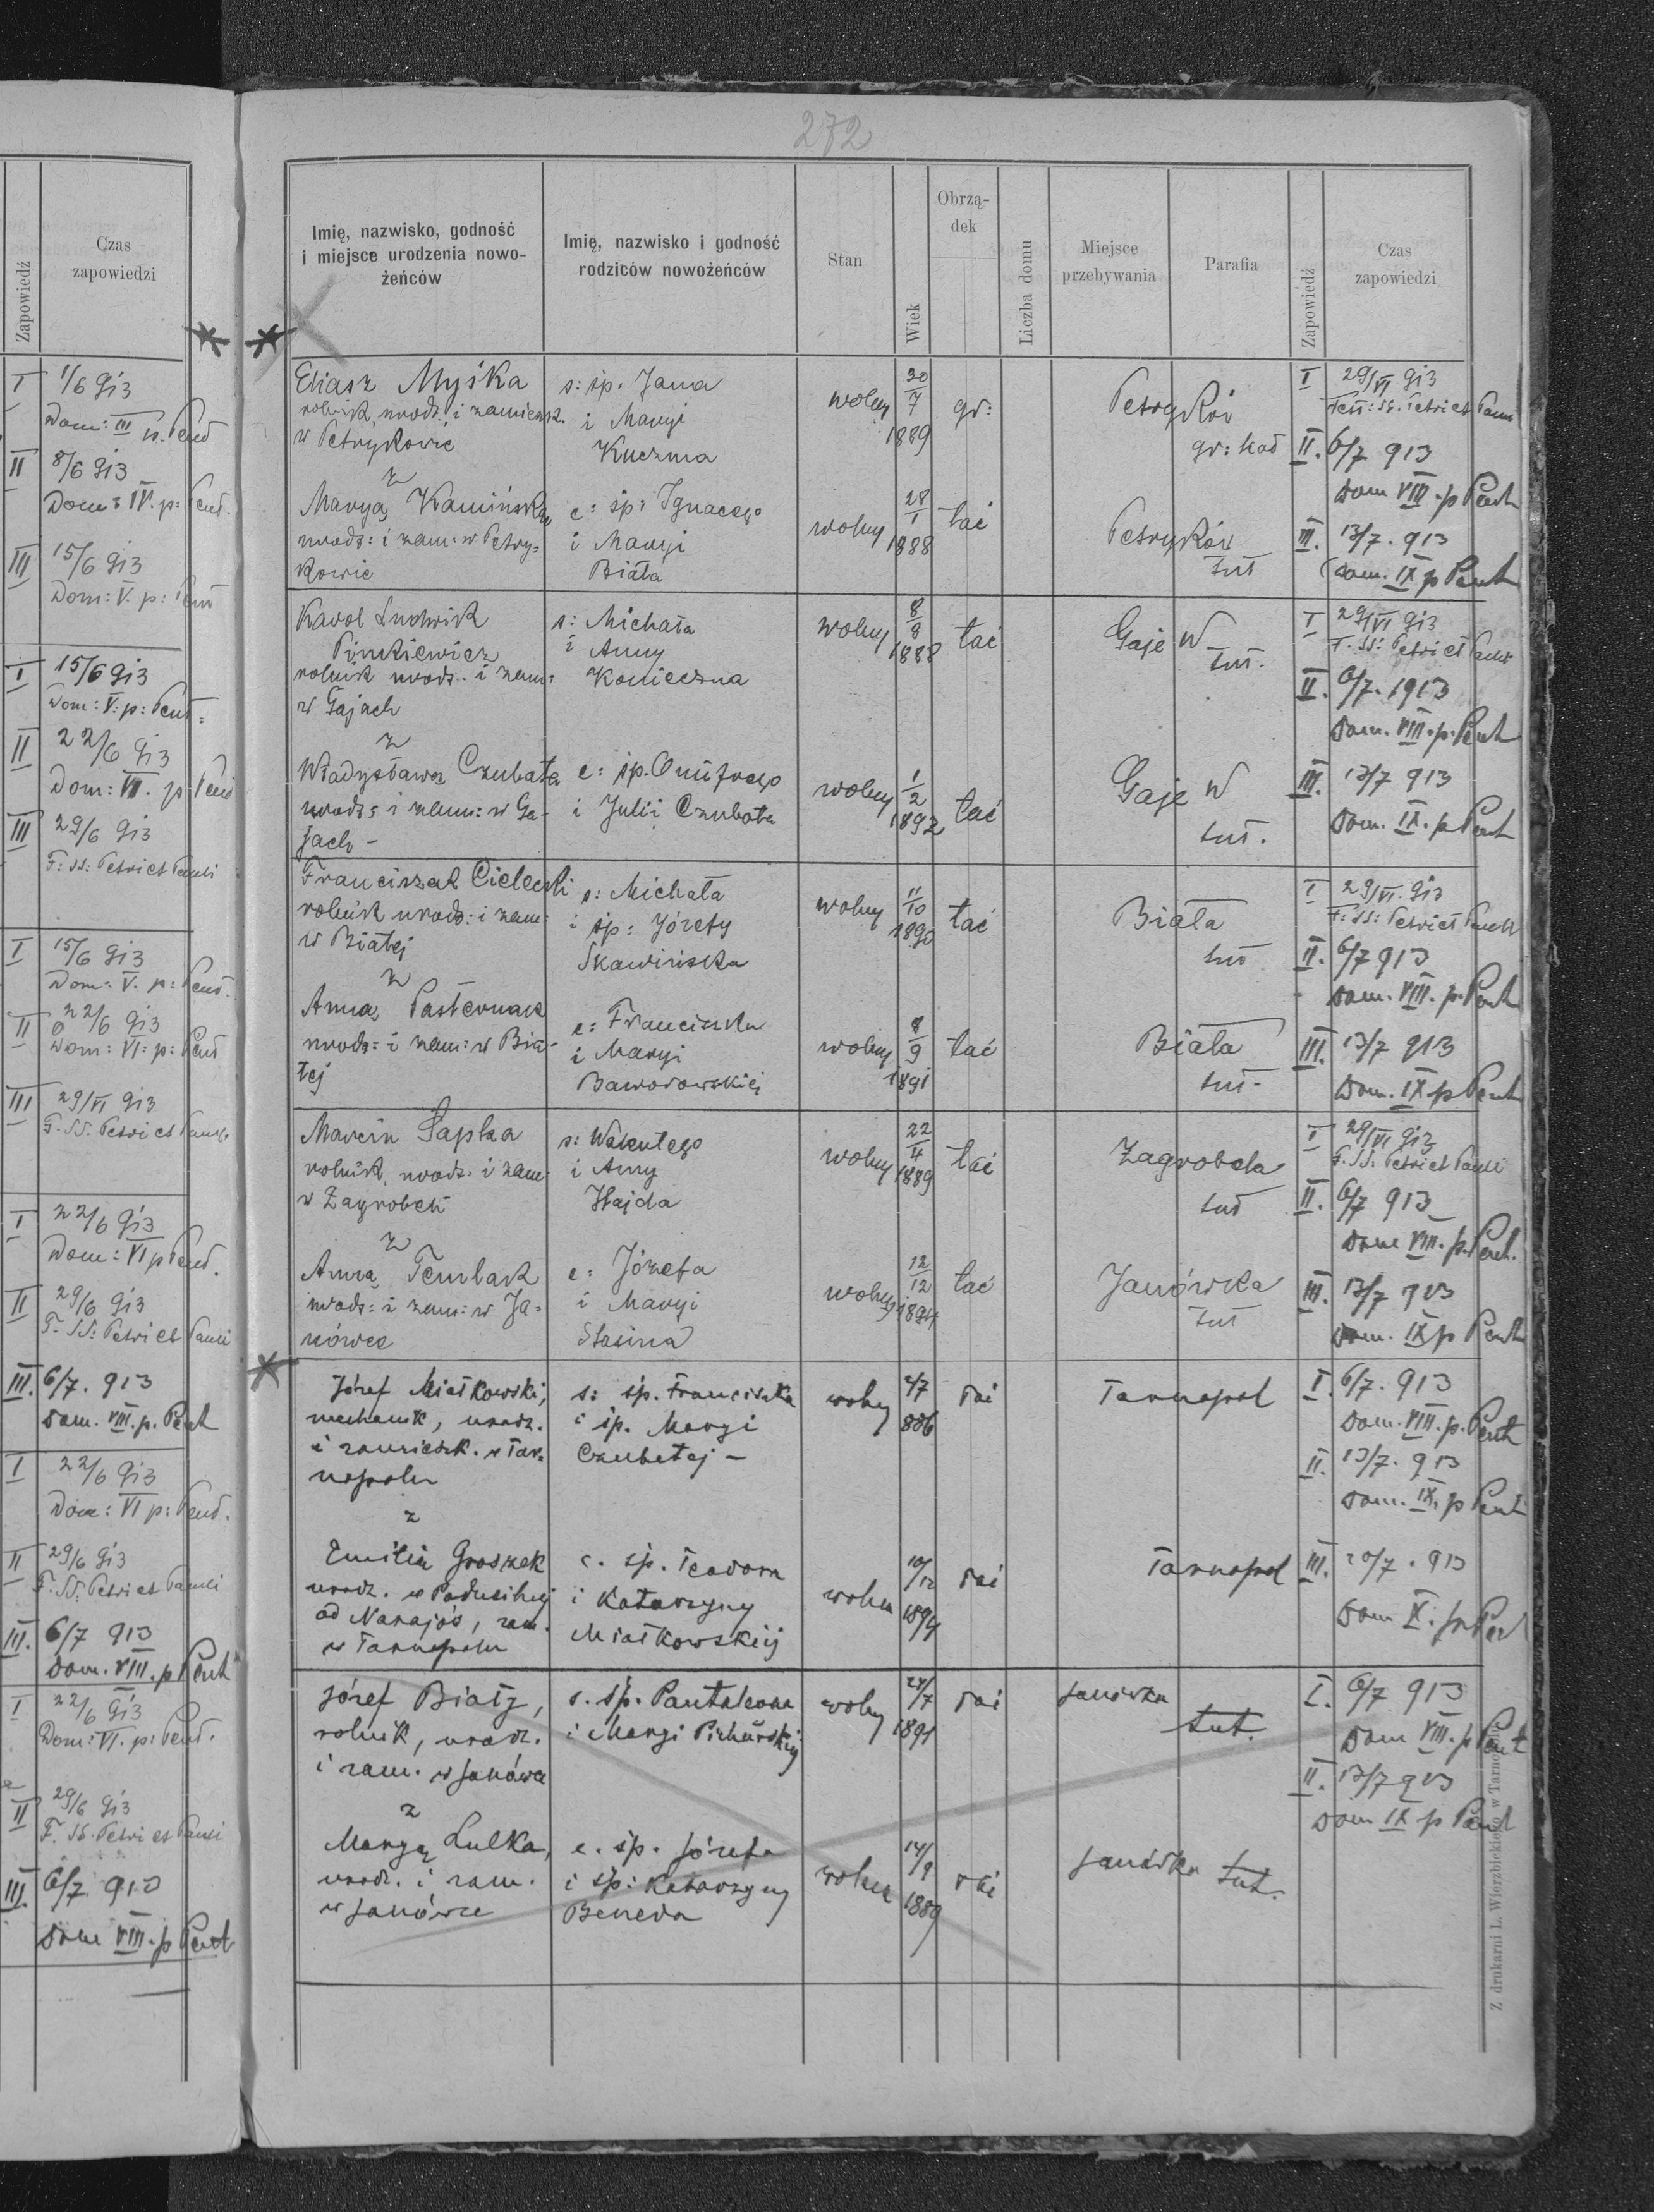 Zapowiedź
Czas
zapowiedzi
I 1/6 913
Dom: III p. Pent
II 8/6 913
Dom: IV. p: Pent.
III 15/6 913
Dom: V. p: Pent
I 15/6 913
Dom: V. p: Pent:
II 22/6 913
Dom: VI. p Pent
III 29/6 913
F: SS: Petri et Pauli
I 15/6 913
Dom: V. p: Pent.
II 22/6 913
Dom: VI: p: Pent
III 29/VI 913
F. SS. Petri et Pauli
I 22/6 913
Dom: VI p Pent.
II 29/6 913
F. SS: Petri et Pauli
III. 6/7. 913
Dom. VIII. p. Pent
I 22/6 913
Dom: VI p: Pent.
II 29/6 913
F. SS. Petri et Pauli
III. 6/7 913
Dom. VIII. p Pent
I 22/6 913
Dom: VI. p: Pent.
II 29/6 913
F. SS. Petri et Pauli
III. 6/7 913
Dom VIII. p Pent
272
Imię, nazwisko, godność
i miejsce urodzenia nowo-
żeńców
Imię, nazwisko i godność
rodziców nowożeńców
Stan
Wiek
Obrzą-
dek
Liczba domu
Miejsce
przebywania
Parafia
Zapowiedź
Czas
zapowiedzi
Eliasz Myśka s: śp. Jana wolny 20/7 1889 gr: Petryków gr: kat I 29/VI 913
rolnik, urodz. i zamieszk. i Maryi Fest: SS. Petri et Pauli
w Petrykowie Kuczma II. 6/7 913
z Dom VIII. p Pent
Maryą Kamińską c: śp: Ignacego wolny 28/1 1888 łać Petryków tut III. 13/7. 913
urodz: i zam: w Petry= i Maryi Dom. IX p Pent
kowie Biała
Karol Ludwik s: Michała wolny 8/8 1888 łać Gaje W tut. I 29/VI 913
Pinkiewicz i Anny F. SS: Petri et Pauli
rolnik urodz. i zam: Konieczna II. 6/7. 1913
w Gajach Dom. VIII. p. Pent
z
Władysławą Czubata c: śp. Onufrego wolny 1/2 1892 łać Gaje W tut. III. 13/7 913
urodz: i zam: w Ga- i Julii Czubata Dom. IX. p Pent
jach -
Franciszek Cielecki s: Michała wolny 11/10 1890 łać Biała tut I 29/VI. 913
rolnik urodz: i zam: i śp: Józefy F: SS: Petri et Pauli
w Białej Skawińska II. 6/7 913
z Dom. VIII. p. Pent
Anną Pasternak c: Franciszka wolny 8/9 1891 łać Biała tut- III. 13/7 913
urodz: i zam: w Bia- i Maryi Dom. IX p Pent
łej Baworowskiej
Marcin Łapka s: Walentego wolny 22/4 1889 łać Zagrobela tut I 29/VI 913
rolnik, urodz. i zam i Anny F. SS: Petri et Pauli
w Zagrobeli Hajda II. 6/7 913
z Dom VIII. p. Pent.
Anną Temlak c: Józefa wolny 12/12 1894 łać Janówka tut III. 13/7 913
urodz: i zam: w Ja= i Maryi Dom. IX p Pent
nówce Stasina
Józef Miatkowski, s: śp. Franciszka wolny 4/7 886 łać Tarnopol I. 6/7. 913
mechanik, urodz. i śp. Maryi Dom. VIII. p. Pent
i zamieszk. w Tar= Czubatej - II. 13/7. 913
nopolu Dom. IX. p Pent
z
Emilią Groszek c. śp. Teodora wolna 10/12 1894 łać Tarnopol III. 20/7. 913
urodz. w i Katarzyny Dom X. p Pent
od Narajów, zam. Miatkowskiej
w Tarnopolu
Józef Biały, s. śp. Pantaleona wolny 28/7 1891 łać Janówka tut. I. 6/7 913
rolnik, urodz. i Maryi Dom VIII. p Pent
i zam. w Janówce II. 13/7 913
z Dom IX p Pent
Maryą Lulka, c. śp. Józefa wolna 14/9 1889 łać Janówka tut.
urodz. i zam. i śp: Katarzyny
w Janówce Beneda
Z drukarni L. Wierzbickiego w Tarnopolu